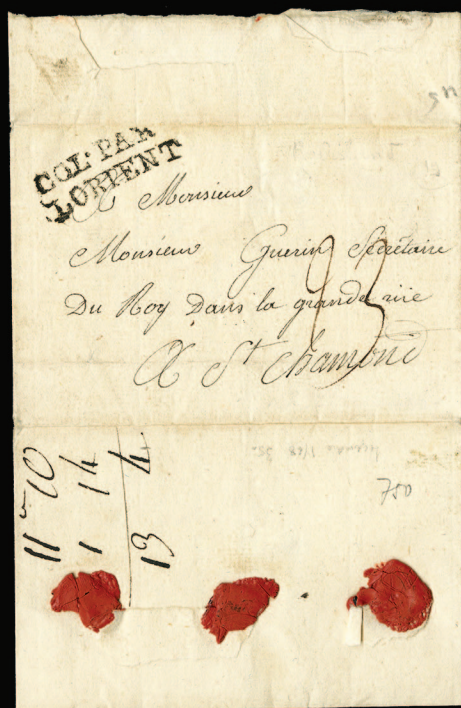 COL·PAR
LORIENT
A Monsieur
Monsieur Guerin Secretaire
Du Roy Dans la grande rüe
A St Chamond
23
11 10
1 14
13 4
750